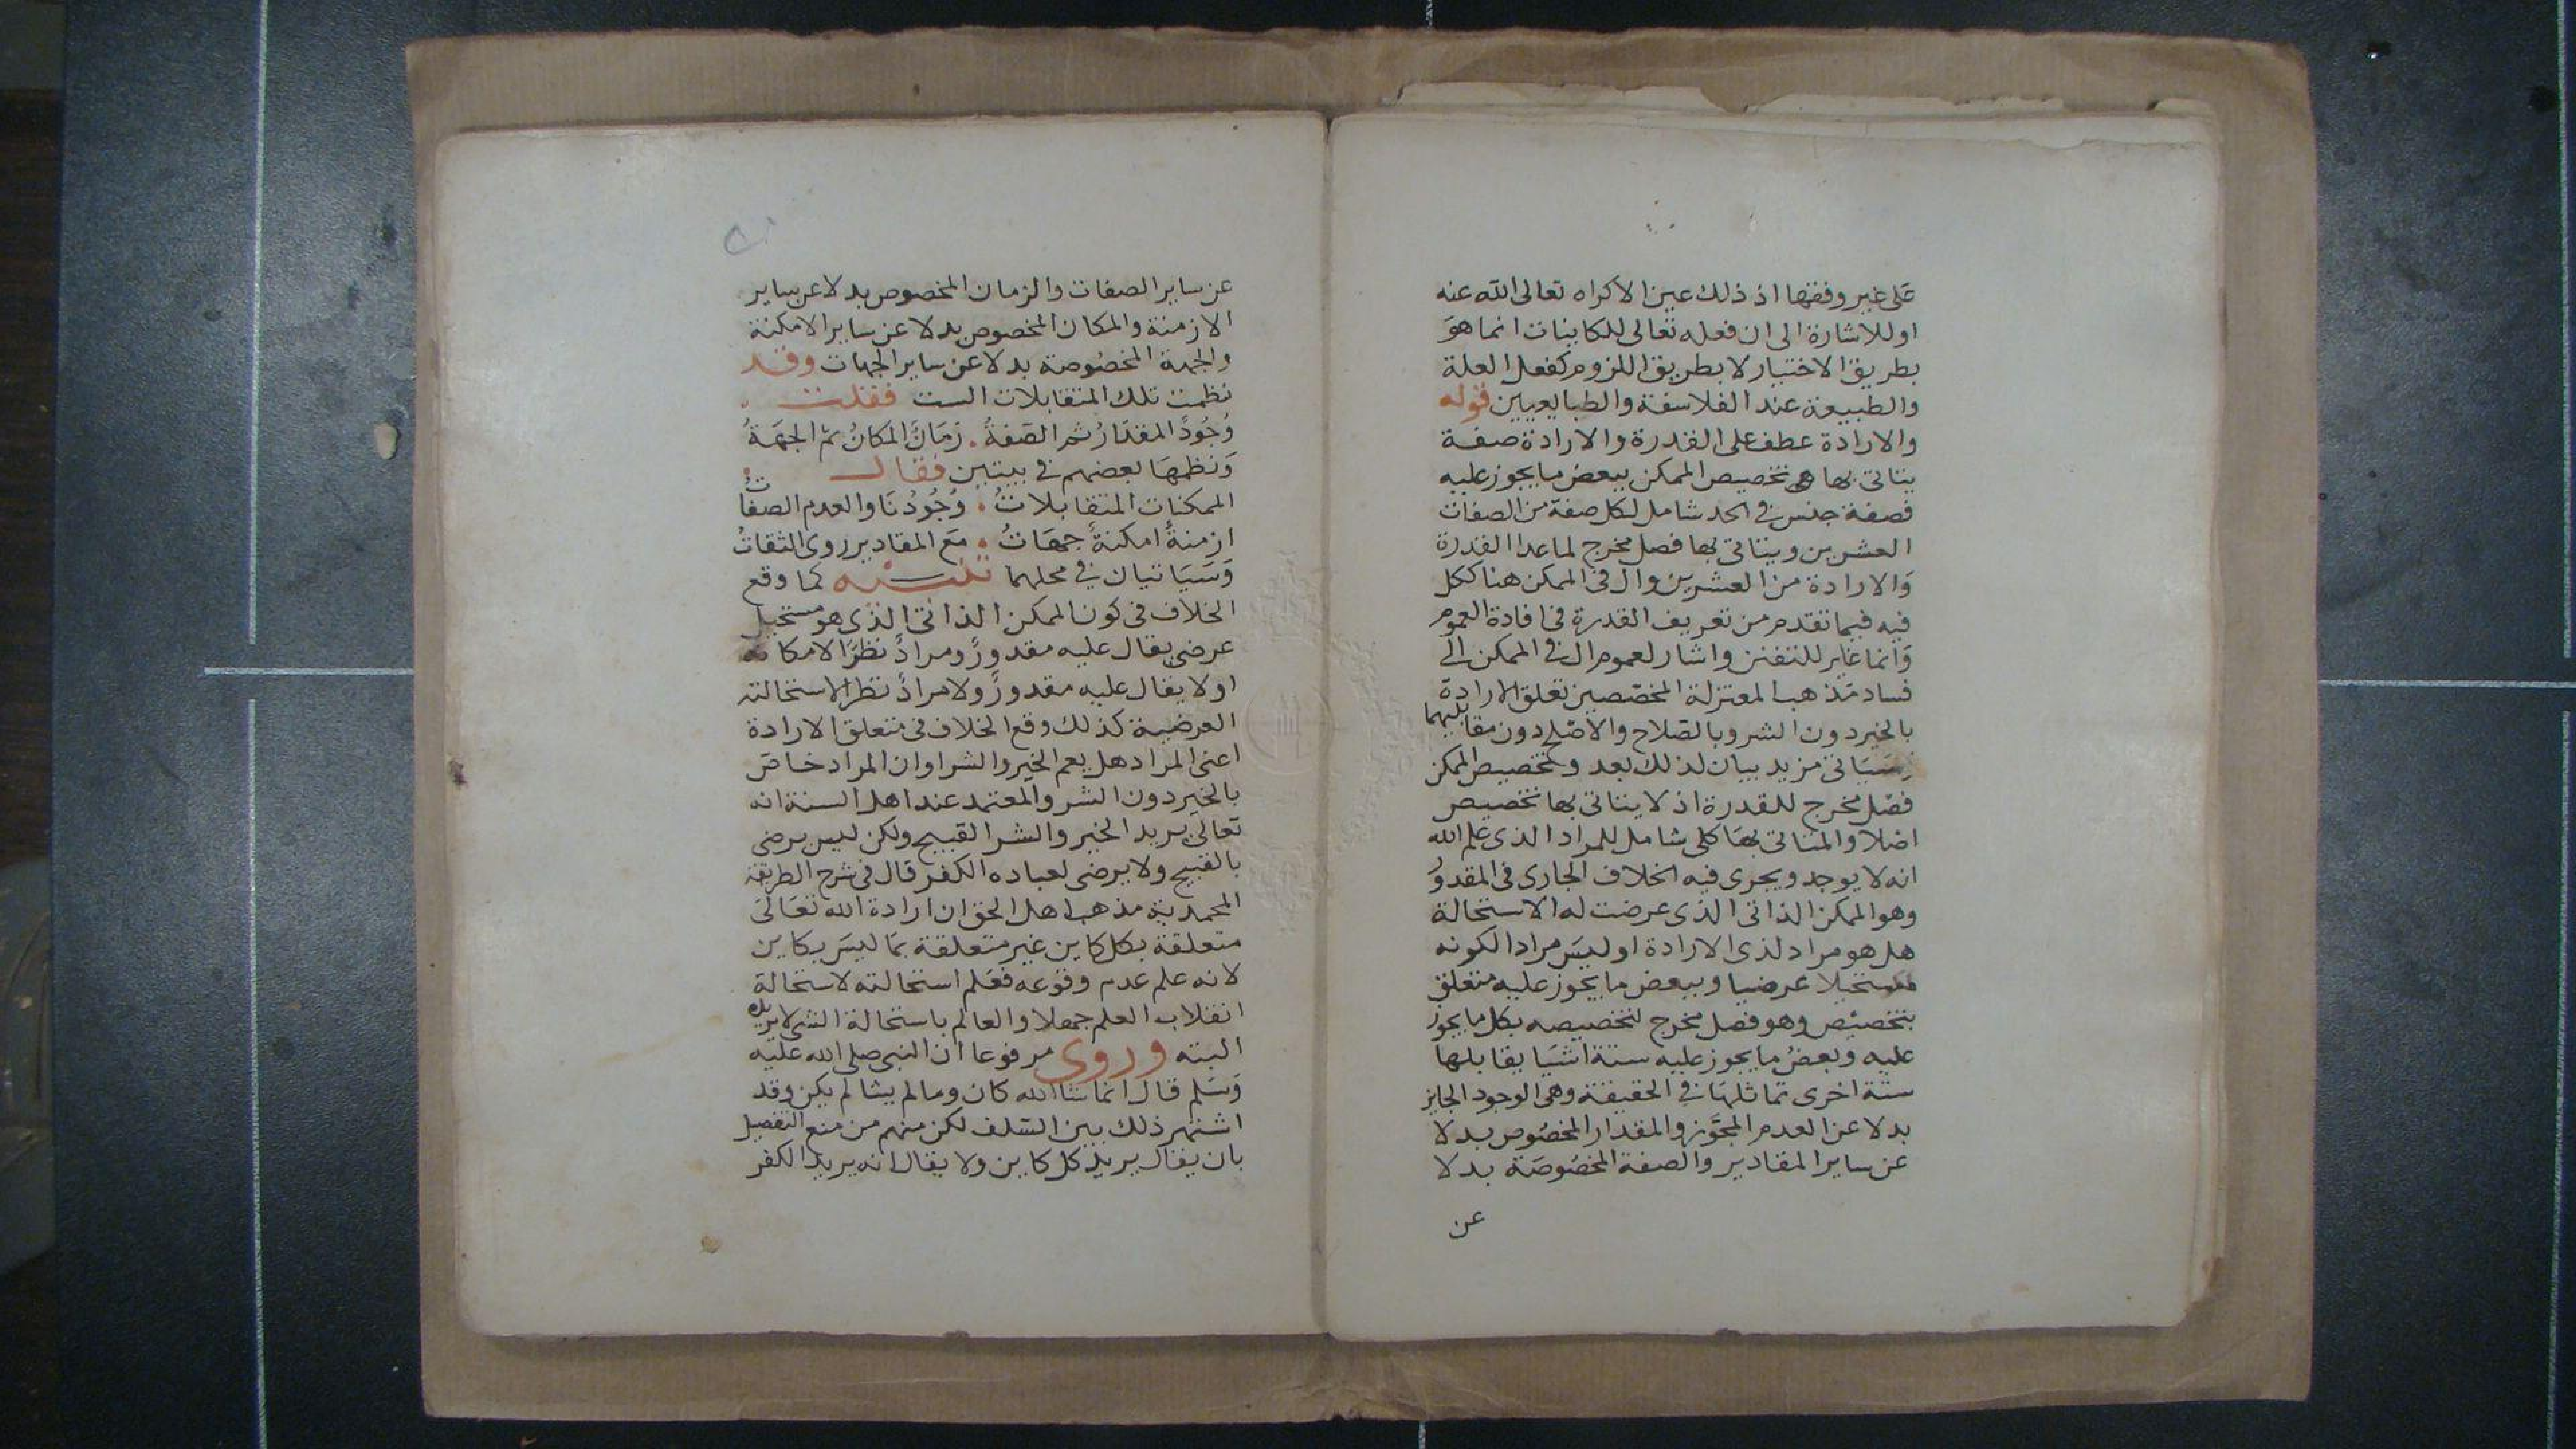 على غير وفقها اذ ذلك عين الاكراه تعالى الله عنه
او للاشارة الى ان فعله تعالى للكاينات انما هو
بطريق الاختيار لا بطريق اللزوم كفعل العلة
والطبيعة عند الفلاسفة والطبايعيين قوله
والارادة عطف على القدرة والارادة صفة
يتاتى بها تخصيص الممكن ببعض ما يجوز عليه
فصفة جنس في الحد شامل لكل صفة من الصفات
العشرين ويتاتى بها فصل مخرج لما عدا القدرة
وَالارادة من العشرين وال في الممكن هنا ككل
فيه فيما تقدم من تعريف القدرة في افادة العموم
وَانما غاير للتفنن واشار لعموم ال في الممكن الى
فساد مَذهب المعتزلة المخصّصين تعلق الارادة
بالخير دون الشر وبالصَلاح والاصْلح دون مقابليهما
وسَيَاتي مزيد بيان لذلك بعد وتخصيص الممكن
فصْل مخرج للقدرة اذ لا يتاتى بها تخصيص
اصْلا والمتاتى بهَا كلى شامل للمراد الذى علم الله
انه لا يوجد ويجرى فيه الخلاف الجارى في المقدوُر
وهو الممكن الذاتى الذى عرضت له الاستحالة
هل هو مراد لذى الارادة او ليسَ مرادا لكونه
مستحيلا عرضيا وببعض ما يجوز عليه متعلق
بتخصيْص وهو فصل مخرج لتخصيصه بكل ما يجوز
عليه وبعضُ ما يجوز عليه ستة اشيَا يقابلها
ستة اخرى تماثلهَا في الحقيقة وهى الوجود الجايز
بدلا عن العدم المجَوَّز والمقدار المخصُوص بدلا
عن ساير المقادير والصفة المخصُوصَة بدلا
عن
عن ساير الصفات والزمان المخصوص بدلا عن ساير
الازمنة والمكان المخصوص بدلا عن ساير الامكنة
والجهة المخصُوصة بدلا عن ساير الجهات وقد
نظمت تلك المتقابلات الست فقلت
وُجُودٌ المقدَارُ ثم الصَفةُ . زمَانٌ المكانُ ثم الجهَةُ
وَنظمهَا بعضهم في بيتين فقال
الممكنات المتقابلاتُ . وُجُودُنَا والعدم الصفاتُ
ازمنةٌ امكنةٌ جهَاتُ . مَع المقادير روى الثقاتُ
وَسَيَاتيان في محلهما تنبيه كما وقع
الخلاف في كون الممكن الذاتى الذى هو مستحيل
عرضى يقال عليه مقدورٌ ومرادٌ نظرًا لامكانه
اولا يقال عليه مقدورٌ ولا مرادٌ نظرا لاستحالته
العرضية كذلك وقع الخلاف في متعلق الارادة
اعنى المرَاد هل يعم الخير والشر او ان المراد خاصّ
بالخير دون الشر والمعتمد عند اهل السنة انه
تعالى يريد الخير والشر القبيح ولكن ليس يرضى
بالقبيح ولا يرضى لعباده الكفر قال في شرح الطريقة
المحمدية مذهب اهل الحق ان ارادة الله تعَالى
متعلقة بكل كاين غير متعلقة بمَا ليسَ بكاين
لانه علم عدم وقوعه فعَلم استحالته لاستحالة
انقلاب العلم جهلا والعالم باستحالة الشى لا يريده
البته وروى مرفوعا ان النبى صلى الله عليْه
وَسَلم قال انما شا الله كان وما لم يشا لم يكن وقد
اشتهر ذلك بين السَّلف لكن منهم من منع التفصيل
بان يقال يريد كل كاين ولا يقال انه يريد الكفر